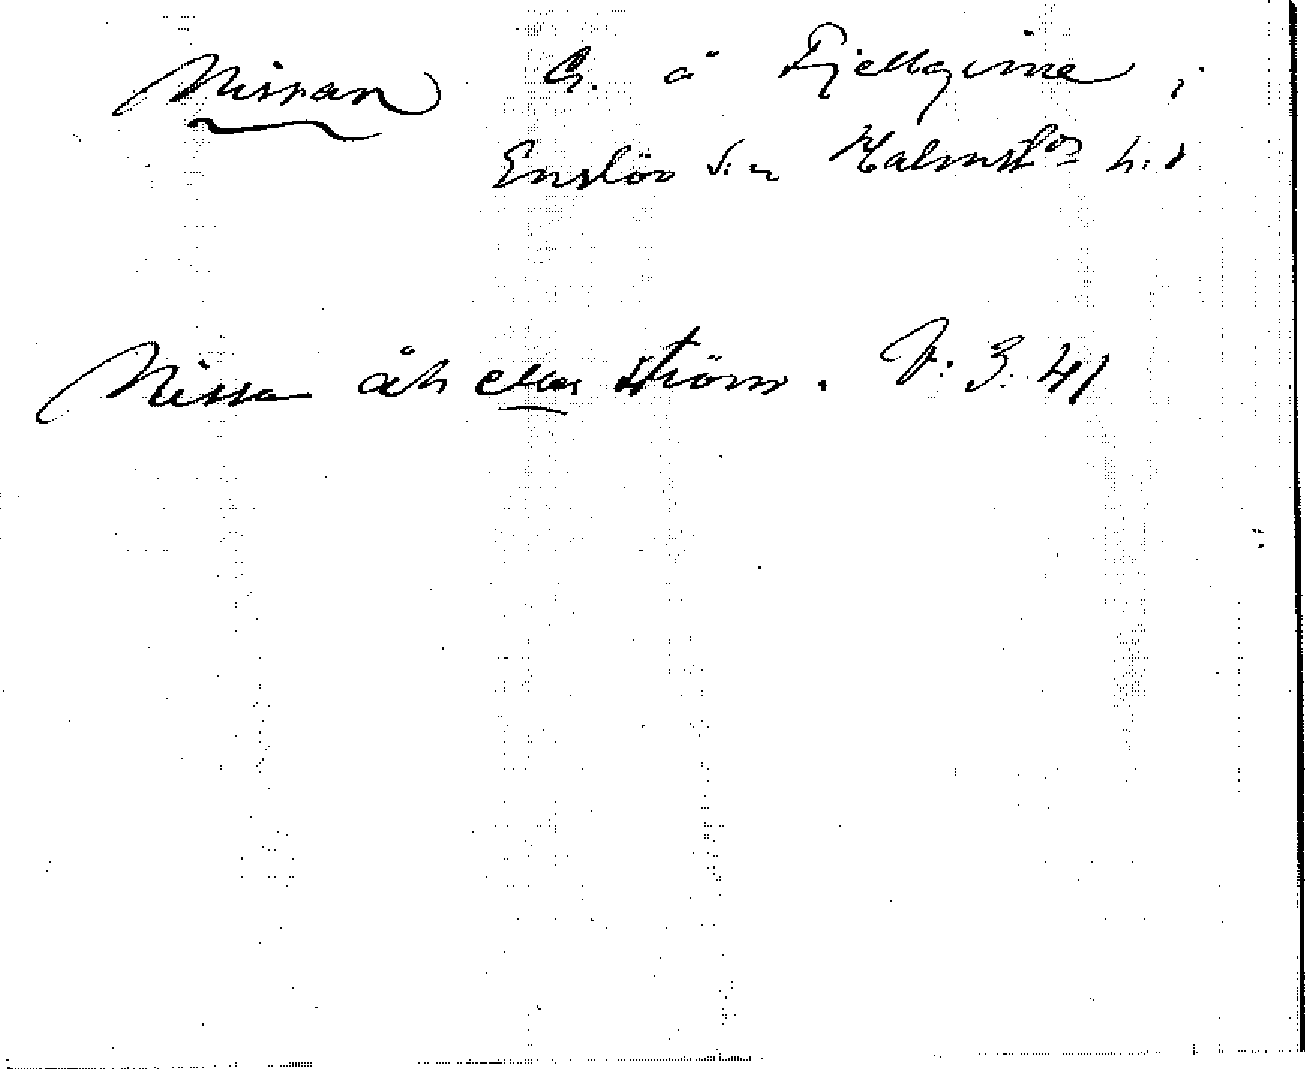 Nissan G. å Fjellgine i
Enslöv s:n Halmst
Nissa åh eller ström. V: 3. 41